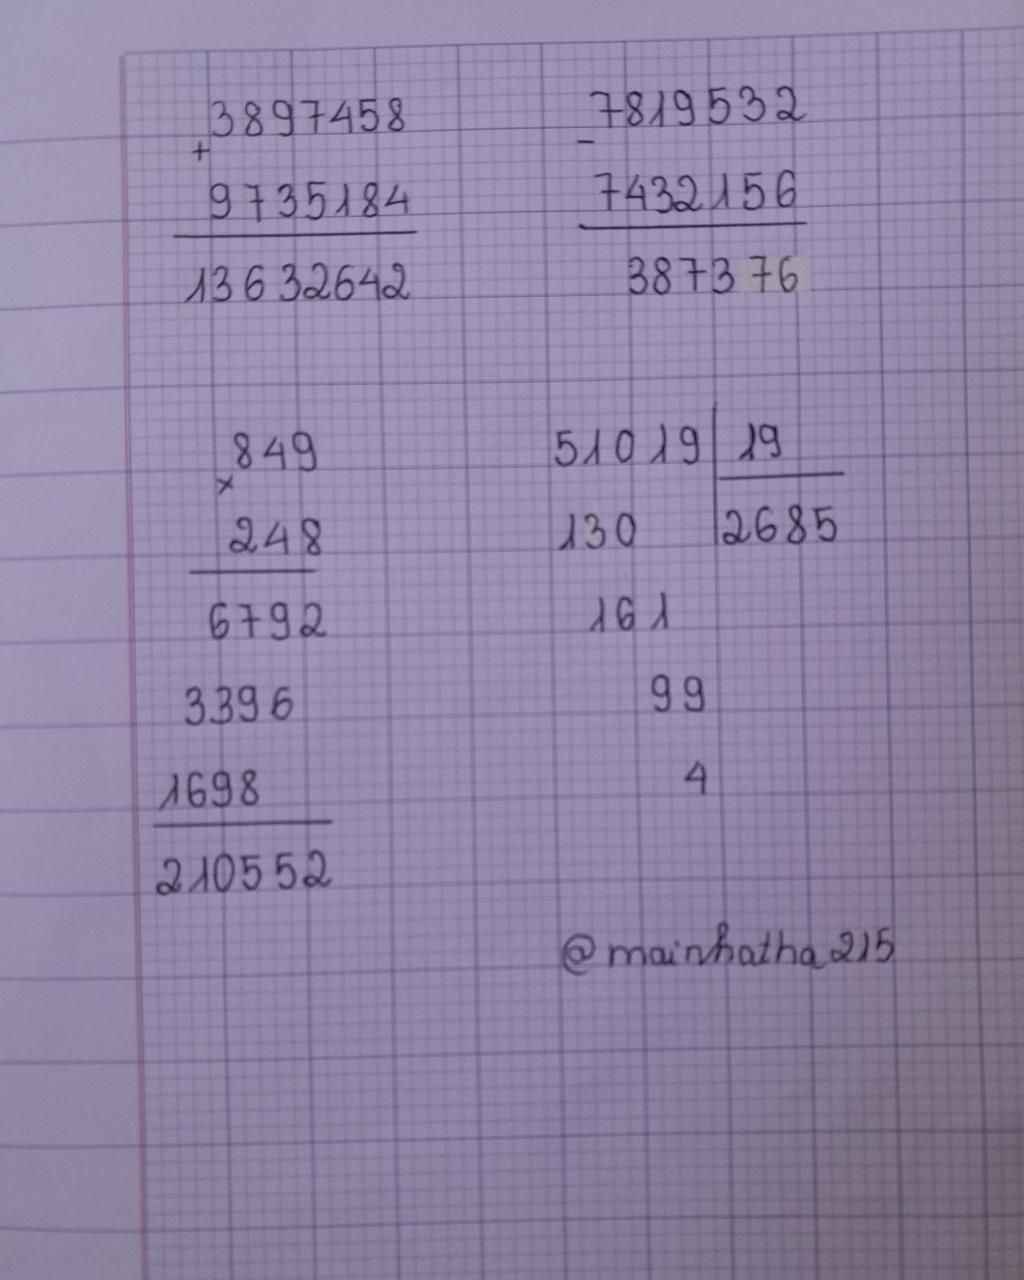 3897458
+
9735184
13632642
7819532
-
7432156
387376
849
x
248
6792
3396
1698
210552
51019 19
130 2685
161
99
4
@mainhatha215